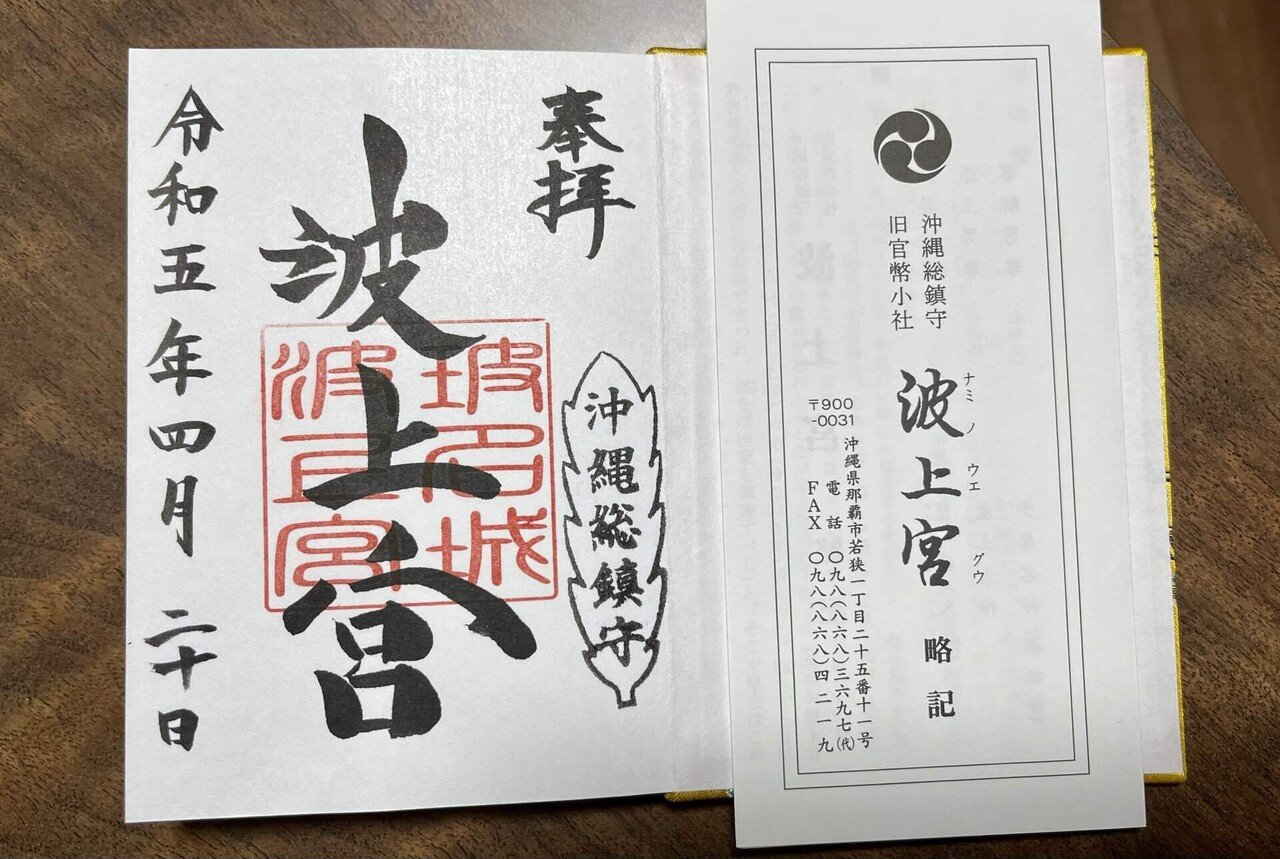 奉拝
沖縄総鎮守
波上宮
玻名城
波上宮
令和五年四月二十日
沖縄総鎮守
旧官幣小社
ナミノウエグウ
波上宮 略記
〒900
-0031
沖縄県那覇市若狭一丁目二十五番十一号
電話 〇九八(八六八)三六九七(代)
FAX 〇九八(八六八)四二一九